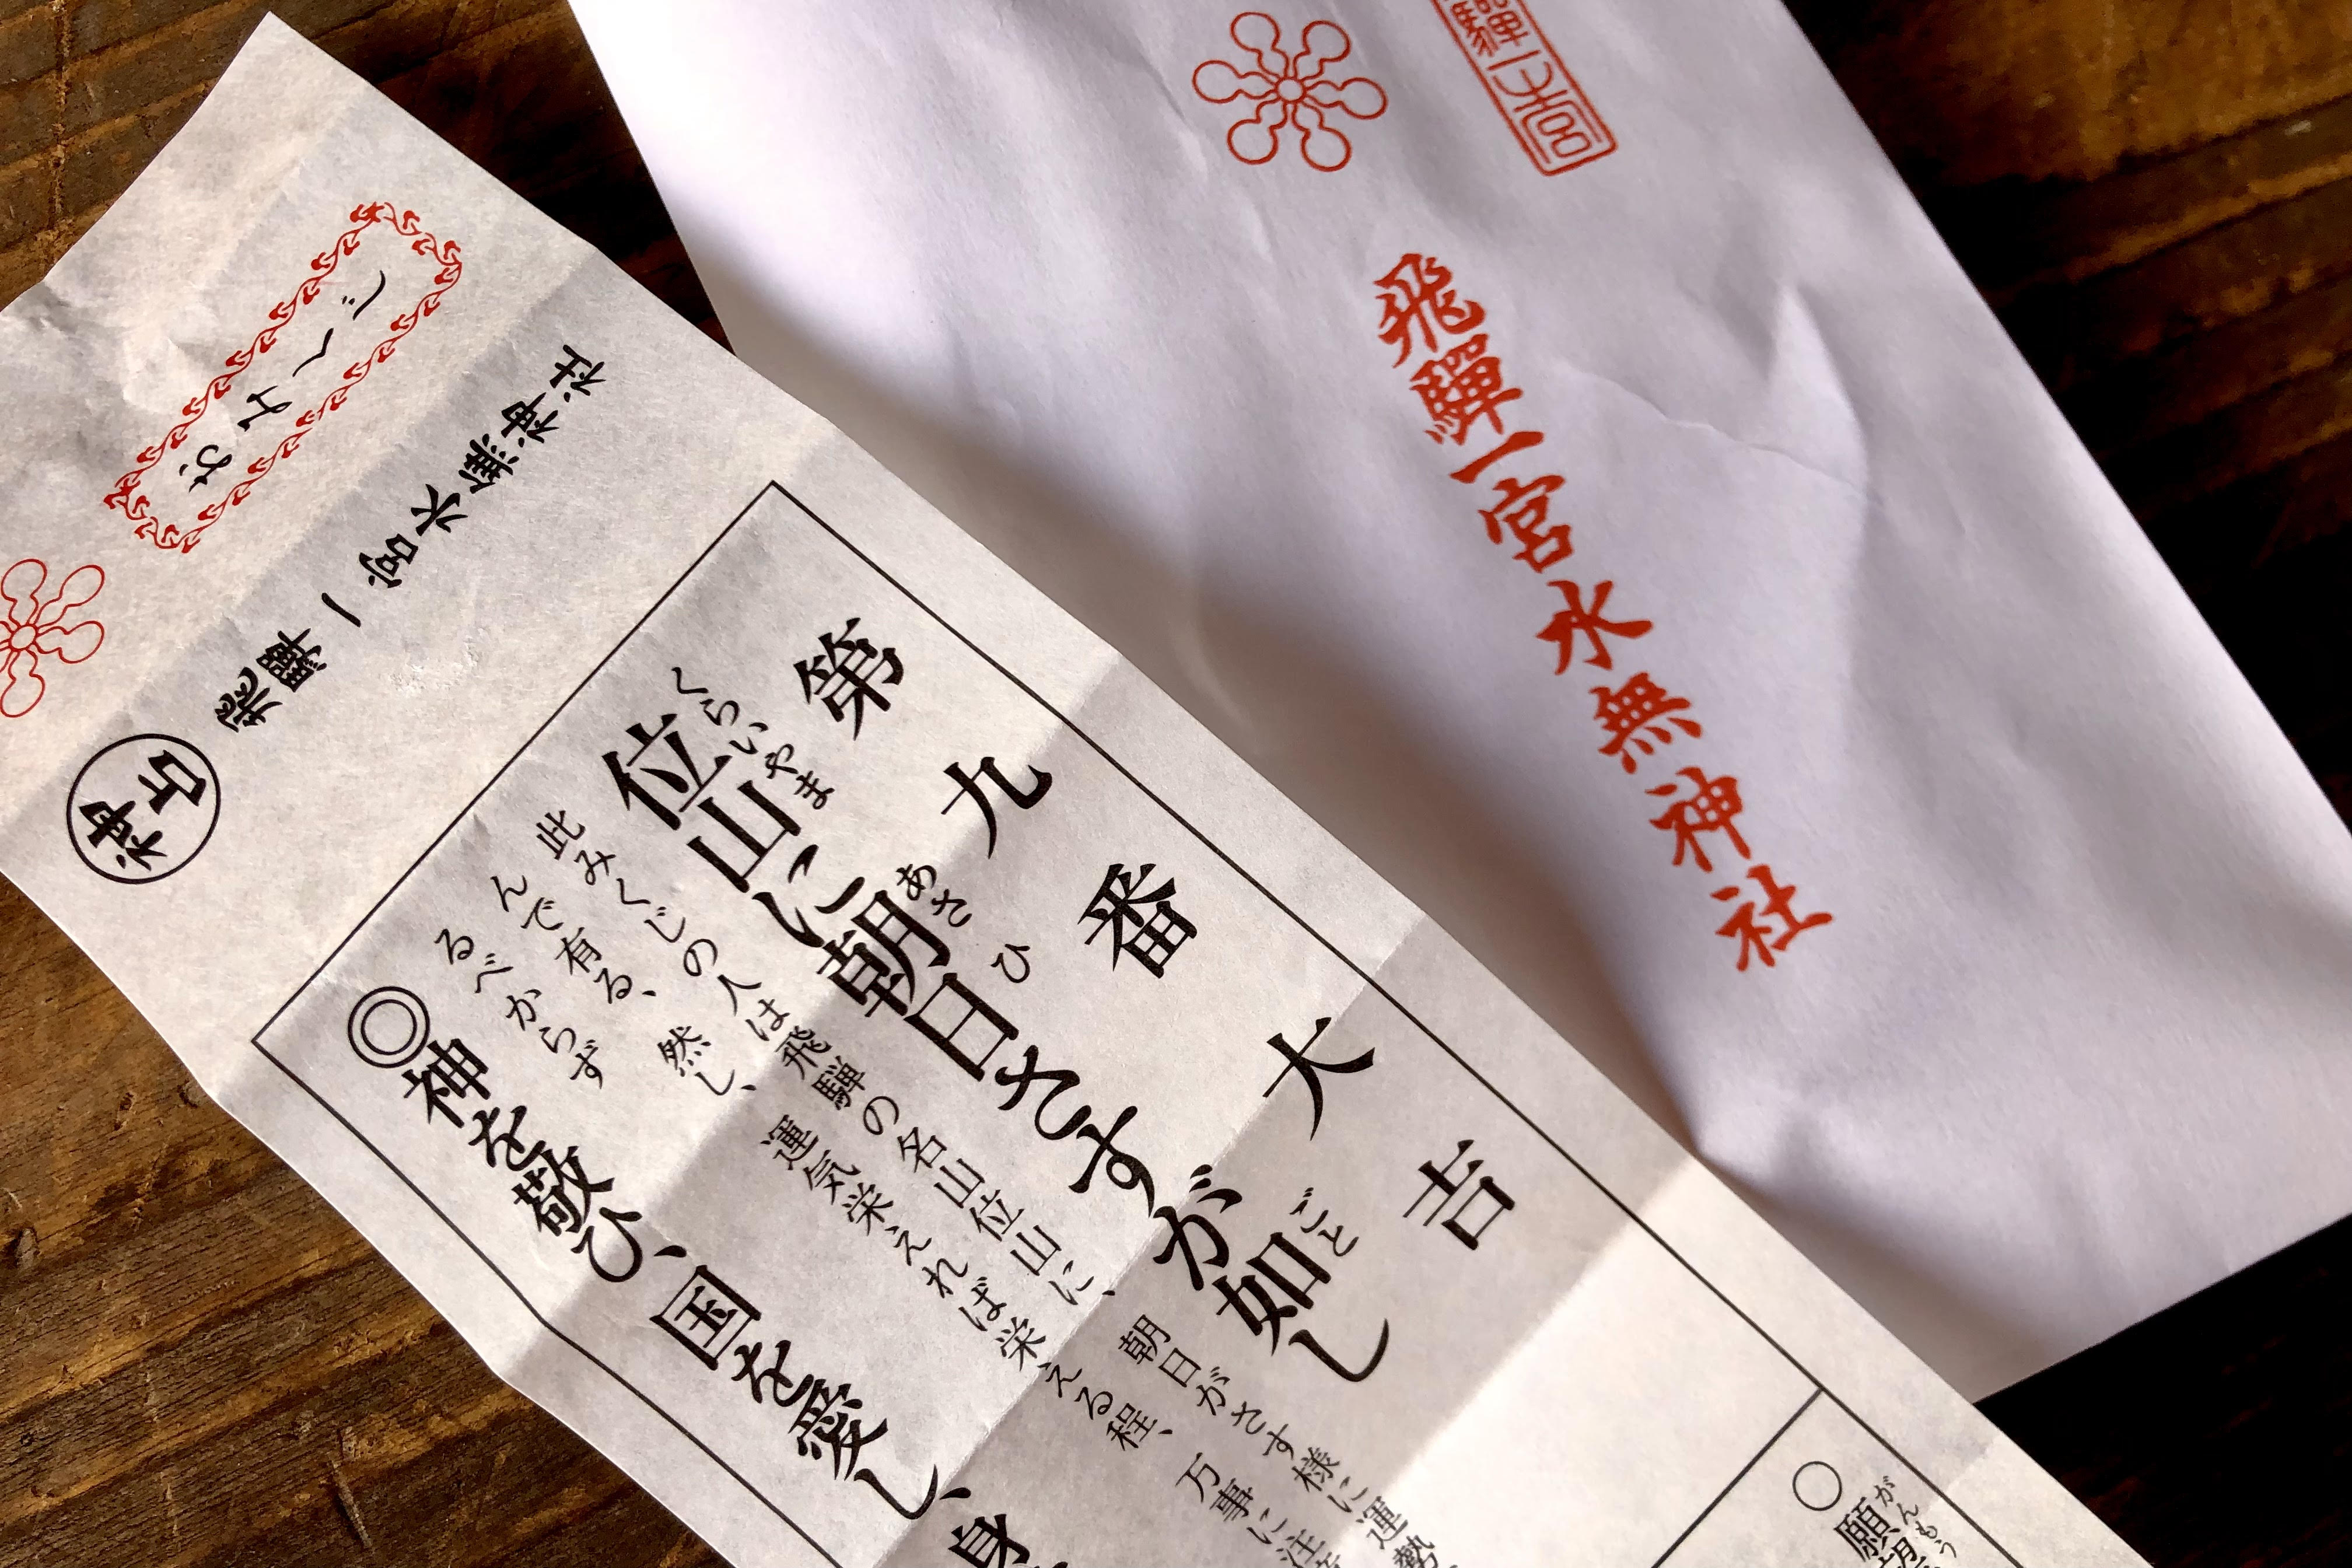 騨一之宮
飛騨一宮水無神社
おみくじ
飛騨一宮水無神社
神占
第九番 大吉
くらいやま あさひ ごと
位山に朝日さすが如し
此みくじの人は飛騨の名山位山に、朝日がさす様に運勢
んで有る、然し、運気栄えれば栄える程、万事に注
るべからず
◎神を敬ひ、国を愛し、身
がんもう
○願望